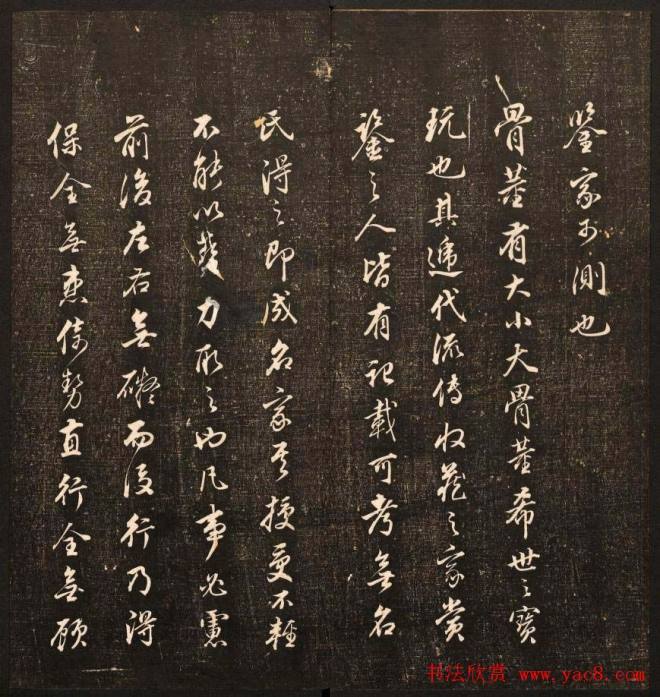 鑒家可測也
骨董有大小大骨董希世之寶
玩也其遞代流傳收藏之家賞
鑒之人皆有記載可考無名
氏得之即成名家其授受不輕
不能以勢力取之也凡事必慮
前後左右無礙而後行乃得
保全無恙倚勢直行全無顧
书法欣赏 www.yac8.com